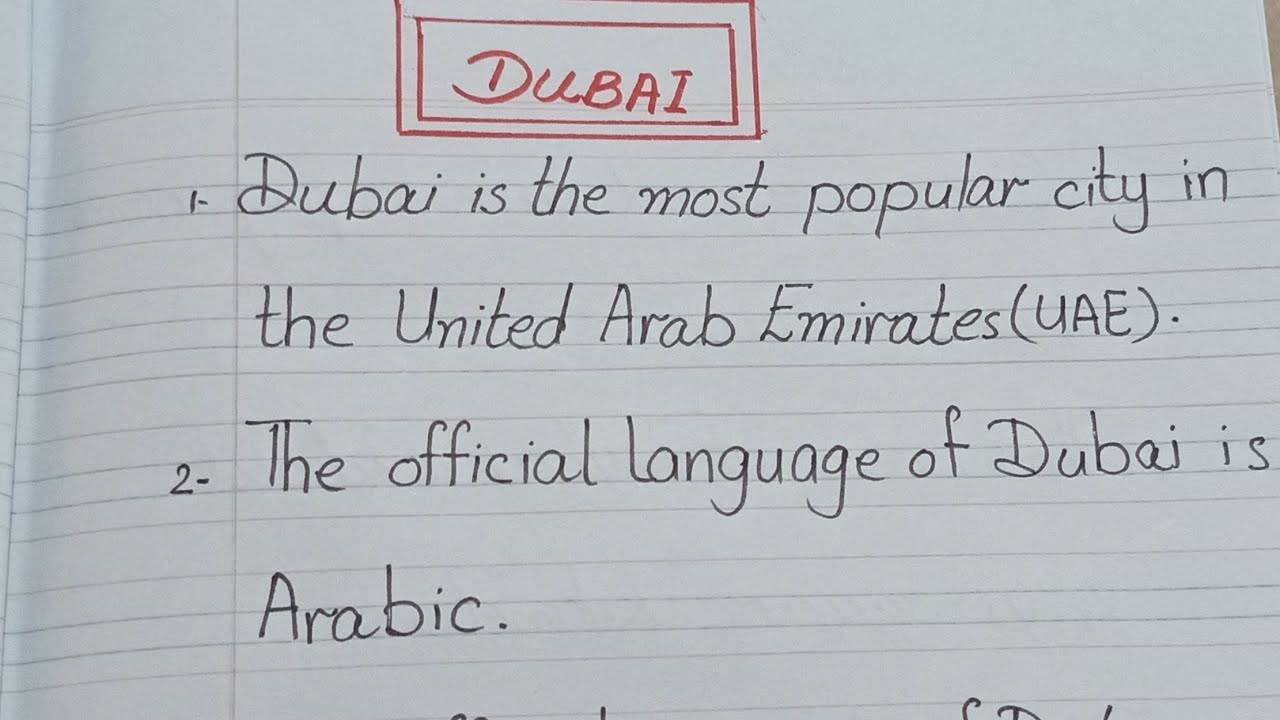 DUBAI
1- Dubai is the most popular city in
the United Arab Emirates (UAE).
2- The official language of Dubai is
Arabic.